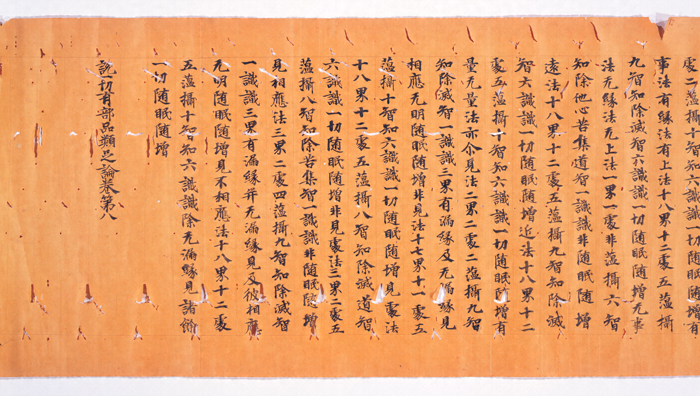 處二蘊攝十智知六識識一切隨眠隨增有
事法有緣法有上法十八界十二處五蘊攝
九智知除滅智六識識一切隨眠隨增无事
法无緣法无上法一界一處非蘊攝六智
知除他心苦集道智一識識非隨眠隨增
遠法十八界十二處五蘊攝九智知除滅
智六識識一切隨眠隨增近法十八界十二
處五蘊攝十智知六識識一切隨眠隨增有
量无量法亦尒見法二界二處二蘊攝九智
知除滅智一識識三界有漏緣及无漏緣見
相應无明隨眠隨增非見法十七界十一處五
蘊攝十智知六識識一切隨眠隨增見處法
十八界十二處五蘊攝八智知除滅道智
六識識一切隨眠隨增非見處法三界二處五
蘊攝八智知除苦集智一識識非隨眠隨增
見相應法三界二處四蘊攝九智知除滅智
一識識三界有漏緣并无漏緣見及彼相應
无明隨眠隨增見不相應法十八界十二處
五蘊攝十智知六識識除无漏緣見諸餘
一切隨眠隨增
說一切有部品類足論卷第八